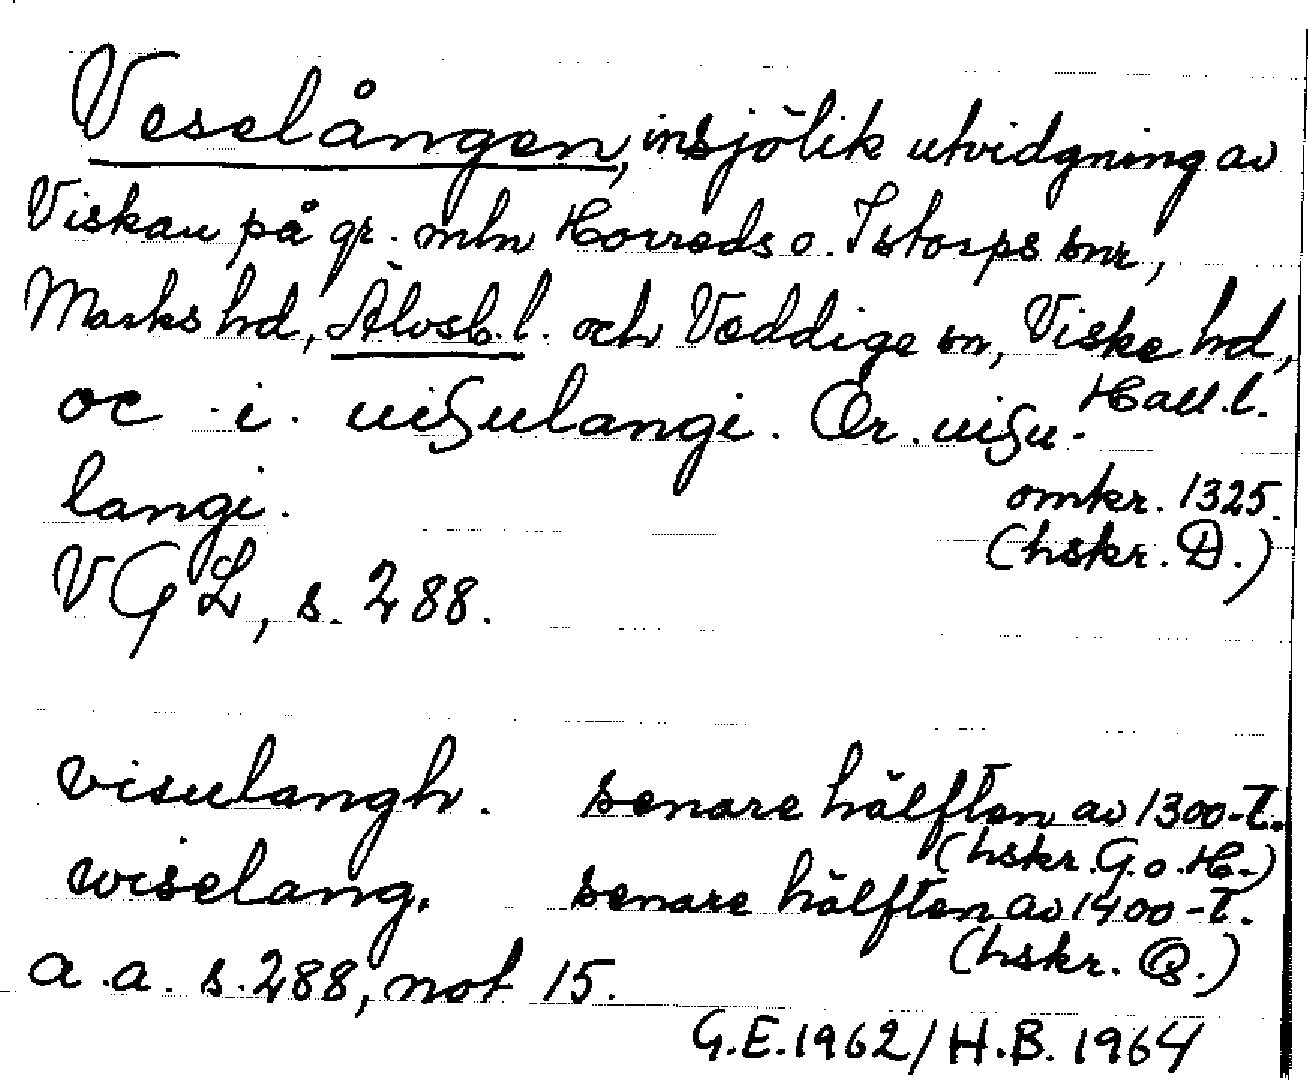 Veselången, insjölik utvidgning av
Viskan på gr. mln Horreds o. Istorps snr,
Marks hd, Älvsb. l. och Veddige sn, Viske hd,
Hall. l.
oc · i · uiſulangi. Or. uiſu-
langi. omkr. 1325.
(hskr. D.)
VGL, s. 288.
visulangh. senare hälften av 1300-t.
(hskr. G. o. H.)
wiselang. senare hälften av 1400-t.
(hskr. Q.)
a. a. s. 288, not 15.
G.E. 1962/H.B. 1964